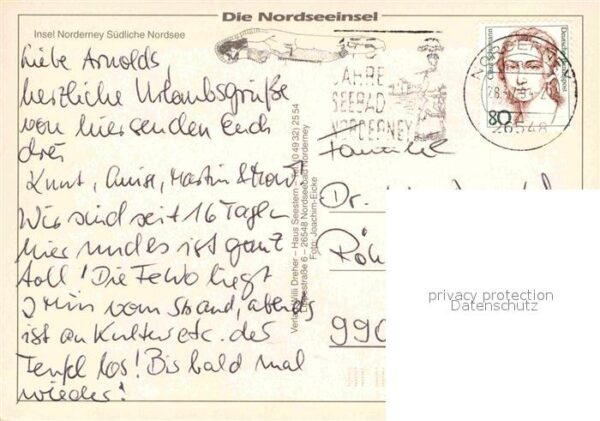 Die Nordseeinsel
Insel Norderney Südliche Nordsee
Liebe Arnolds,
herzliche Urlaubsgrüße
von hier senden Euch
drei
Wir sind seit 16 Tagen
hier und es ist ganz
toll! Die FeWo liegt
2 Min vom Strand, abends
ist an Kultur etc. der
Teufel los! Bis bald mal
wieder!
Verlag Willi Dreher – Haus Seestern – Tel. (0 49 32) 25 54
26548 Nordseebad Norderney
Foto: Joachim Eicke
JAHRE
SEEBAD
NORDERNEY
NORDERNEY
26548
Deutsche Bundespost
80
Familie
Dr.
Röh
990
privacy protection
Datenschutz